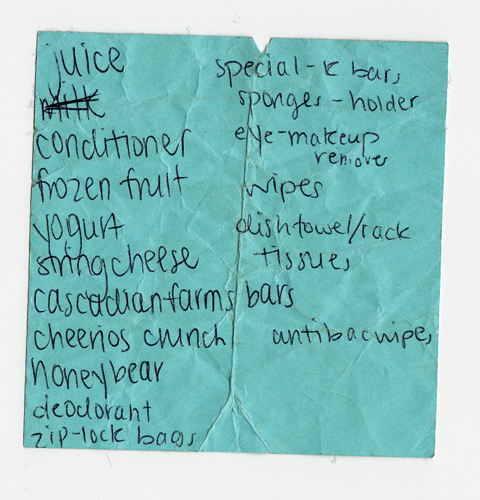 juice
milk
conditioner
frozen fruit
yogurt
string cheese
cascadian farms bars
cheerios crunch
honeybear
deodorant
zip-lock bags
special-k bars
sponges - holder
eye-makeup
remover
wipes
dishtowel/rack
tissues
antibacwipes